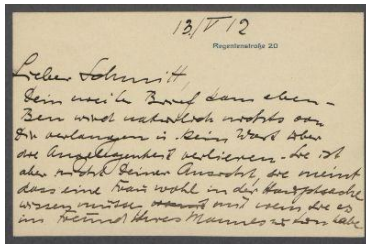 13/V 12
Regentenstraße 20
Lieber Schmitt,
Dein zweiter Brief kam eben –
Ben wird natürlich nichts von
Dir verlangen u. kein Wort über
die Angelegenheit verlieren – Sie ist
aber nicht Deiner Ansicht, sie meint
dass eine Frau wohl in der Hauptsache
wissen müsse und wenn sie es
an Freund ihres Mannes zu tun habe